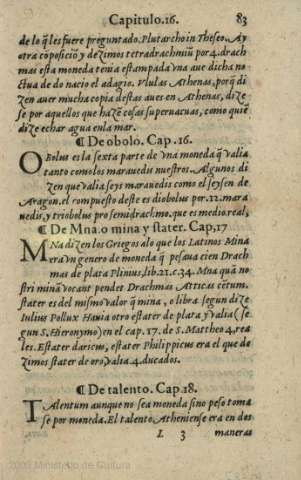 Capitulo.16. 83
de lo q̃ les fuere preguntado. Plutarcho in Theseo. Ay
otra cõposiciõ y dezimos tetradrachmiũ por 4. drach
mas esta moneda tenia estampada vna aue dicha no
ctua de do nacio el adagio. Vlulas Athenas, porq̃ di
zen auer mucha copia destas aues en Athenas, dize
se por aquellos que hazẽ cosas superuacuas, como quiẽ
dize echar agua enla mar.
¶ De obolo. Cap. 16.
OBolus es la sexta parte de vna moneda q̃ valia
tanto como los marauedis nuestros. Algunos di
zen que valia seys marauedis como el seysen de
Aragon. el rompuesto deste es diobolus por .12. mara
uedis, y triobolus pro semidrachmo, que es medio real,
¶ De Mna. o mina y stater. Cap. 17
MNa dizen los Griegos alo que los Latinos Mina
era vn genero de moneda q̃ pesaua cien Drach
mas de plata Plinius, lib. 21. c. 34. Mna quã no
stri minã vocant pendet Drachmas Atticas cẽtum.
stater es del mismo valor q̃ mina, o libra segun dize
Iulius Pollux Hauia otro estater de plata y valia (se
gun S. Hieronymo) en el cap. 17. de S. Mattheo 4. rea
les. Estater daricus, estater Philippicus era el que de
zimos stater de oro, valia 4. ducados.
¶ De talento. Cap. 18.
TAlentum aunque no sea moneda sino peso toma
se por moneda. El talento Atheniense era en dos
L 3 maneras
2009 Ministerio de Cultura